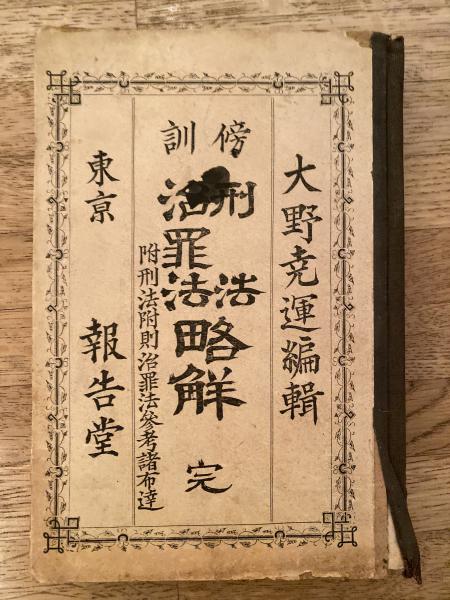 大野堯運編輯
傍訓
刑法
治罪法
略解 完
附刑法附則治罪法參考諸布達
東京 報告堂